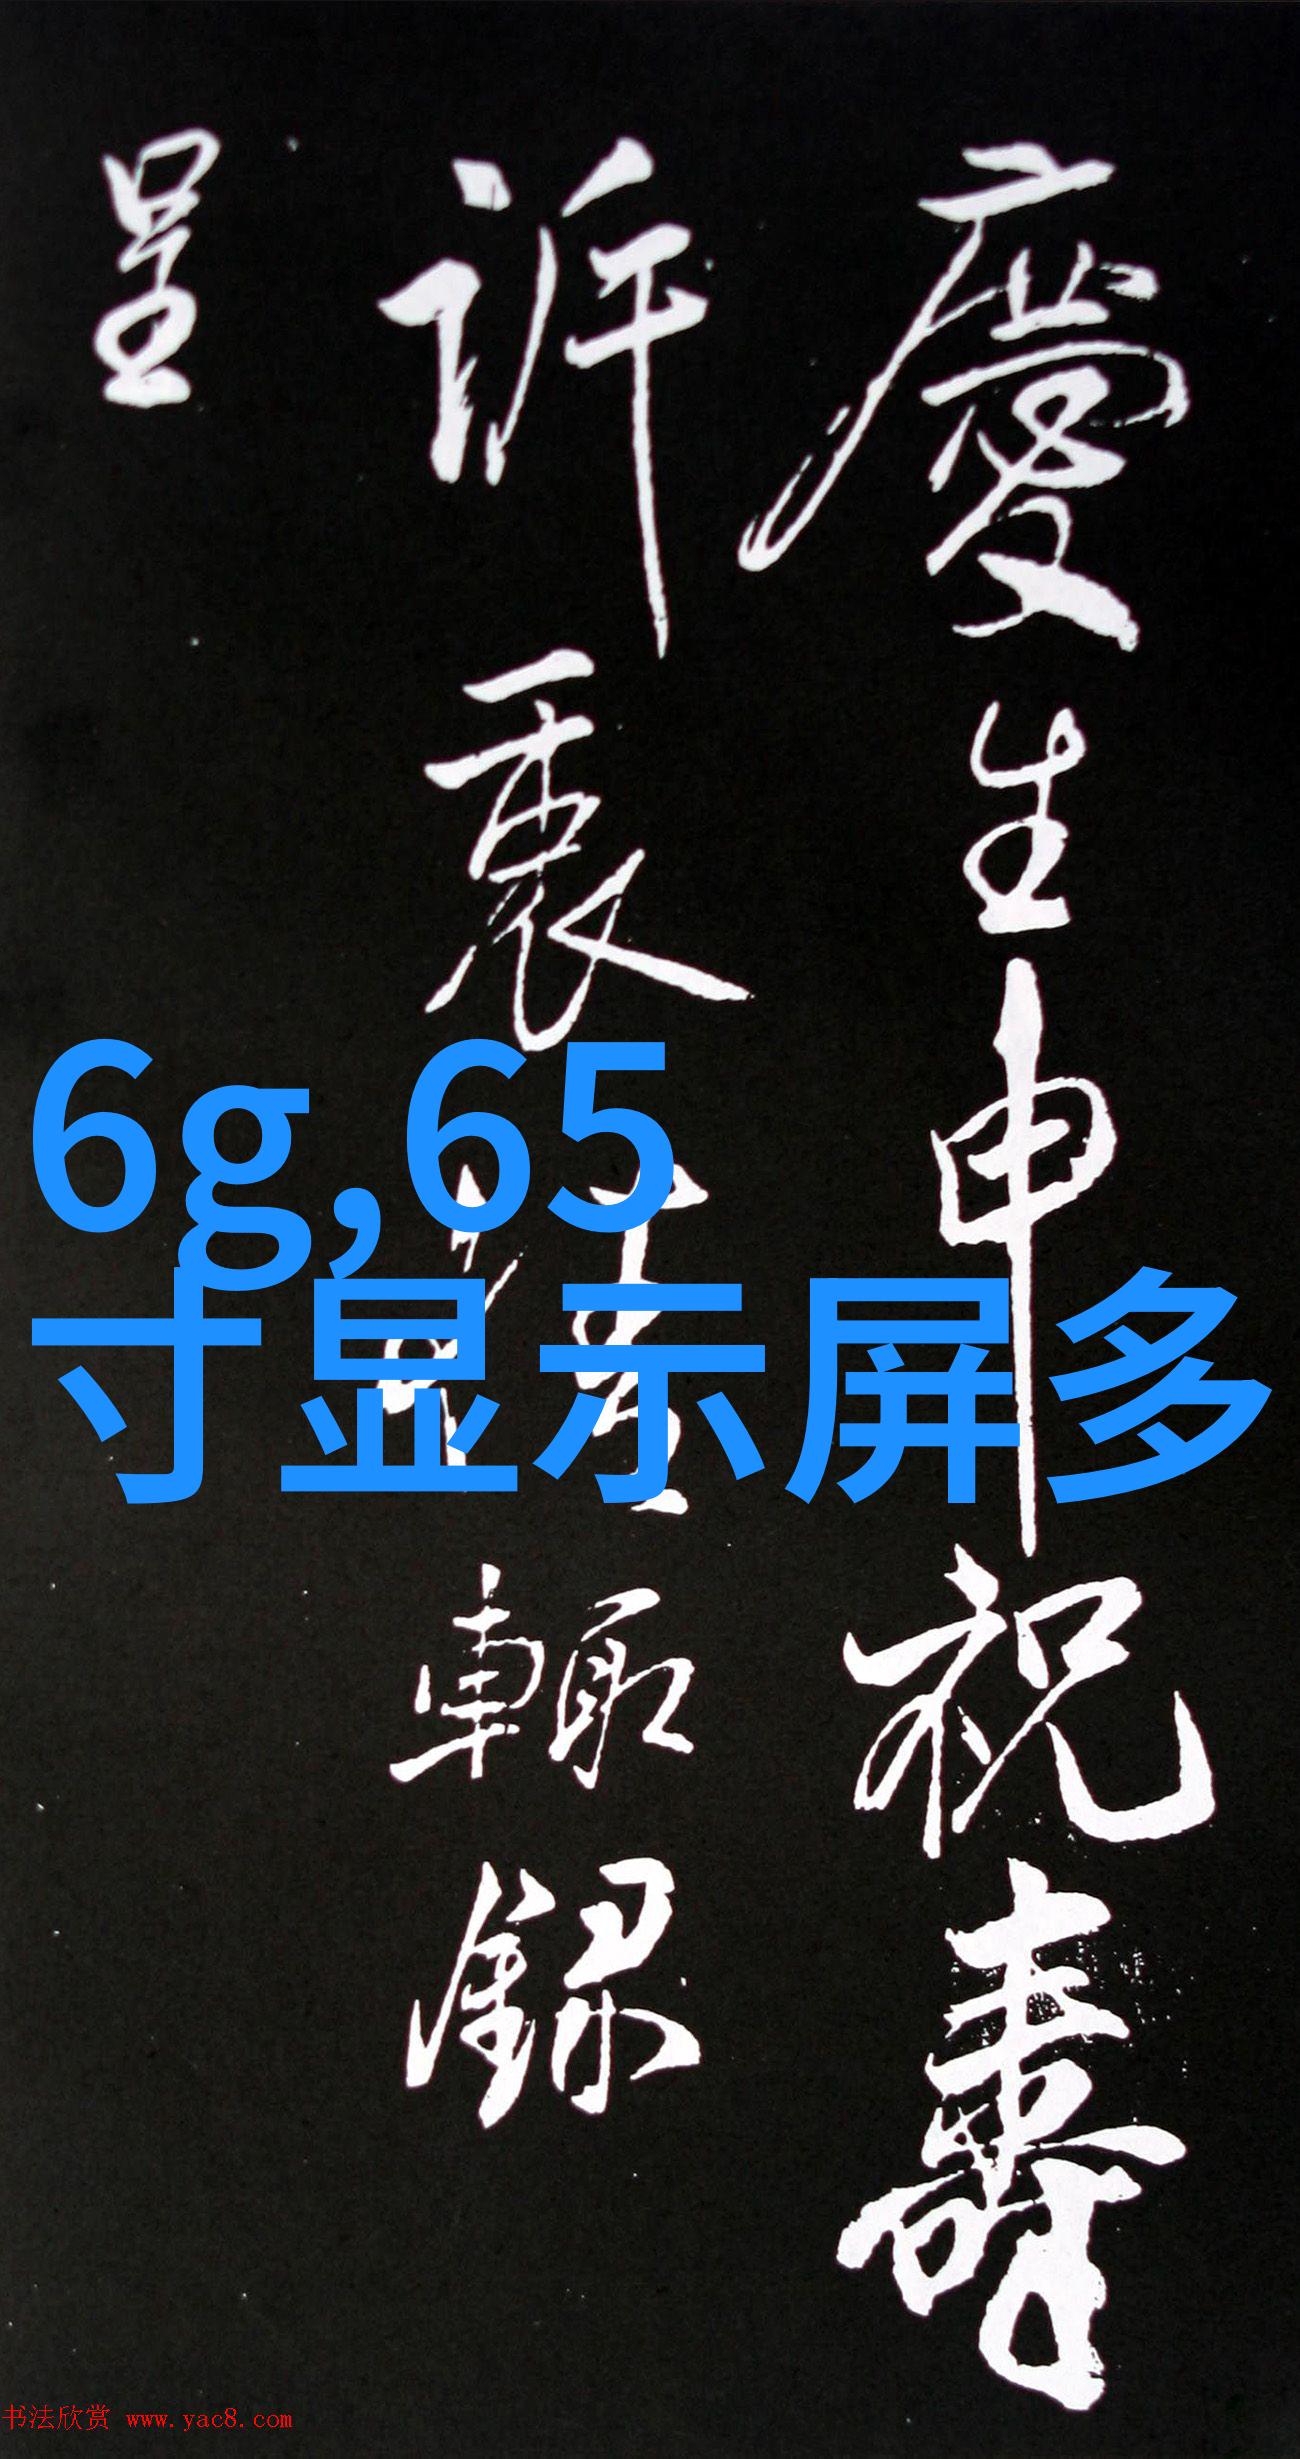 慶生申祝壽
訢衷 輒録
呈
6g,65
寸显示屏多
书法欣赏 www.yac8.com